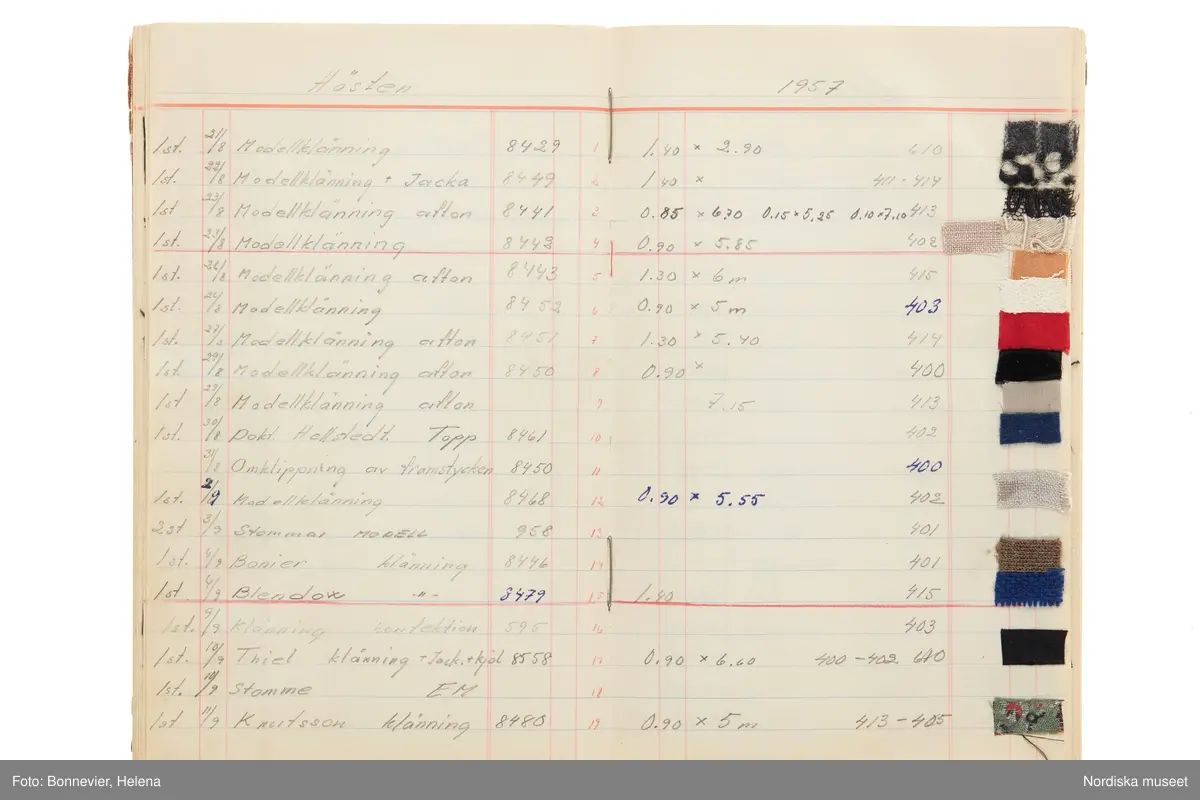 Hösten 1957
1st. 21/8 Modellklänning 8429 1 1.40 × 2.90 410
1st. 22/8 Modellklänning + Jacka 8449 2 1.40 × 411-414
1st 23/8 Modellklänning afton 8441 3 0.85 × 6.70 0.15×5.25 0.10×7.10 413
1st. 23/8 Modellklänning 8443 4 0.90 × 5.85 402
1st. 26/8 Modellklänning afton 8443 5 1.30 × 6 m 415
1st. 26/8 Modellklänning 8452 6 0.90 × 5 m 403
1st. 27/8 Modellklänning afton 8451 7 1.30 × 5.40 414
1st. 29/8 Modellklänning afton 8450 8 0.90 × 400
1st 29/8 Modellklänning afton 9 7.15 413
1st. 30/8 Dokt. Hellstedt. Topp 8461 10 402
31/8 Omklippning av framstycken 8450 11 400
1st. 2/9 Modellklänning 8468 12 0.90 × 5.55 402
2st 3/9 Stommar MODELL 958 13 401
1st. 4/9 Bonier klänning 8446 14 401
1st. 4/9 Blendow -"- 8479 15 1.40 415
1st. 9/9 Klänning konfektion 595 16 403
1st. 10/9 Thiel klänning + Jack.+kjol 8558 17 0.90 × 6.60 400-402 410
1st. 10/9 Stomme EM 18
1st 11/9 Knutsson klänning 8480 19 0.90 × 5 m 413-405
Foto: Bonnevier, Helena Nordiska museet